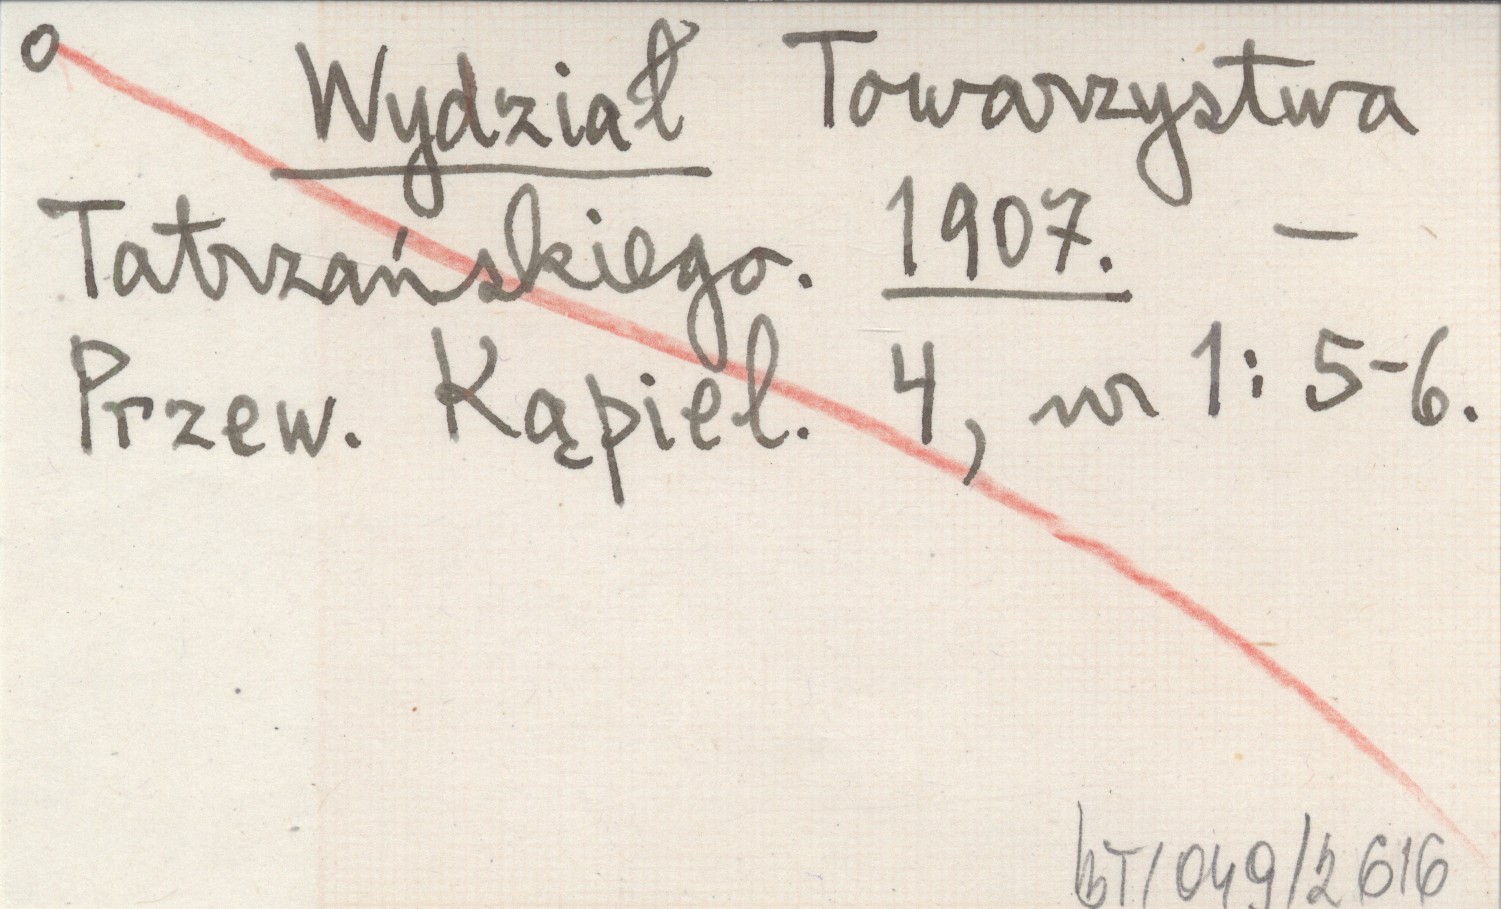 o Wydział Towarzystwa
Tatrzańskiego. 1907. —
Przew. Kąpiel. 4, nr 1: 5-6.
bT/049/2616